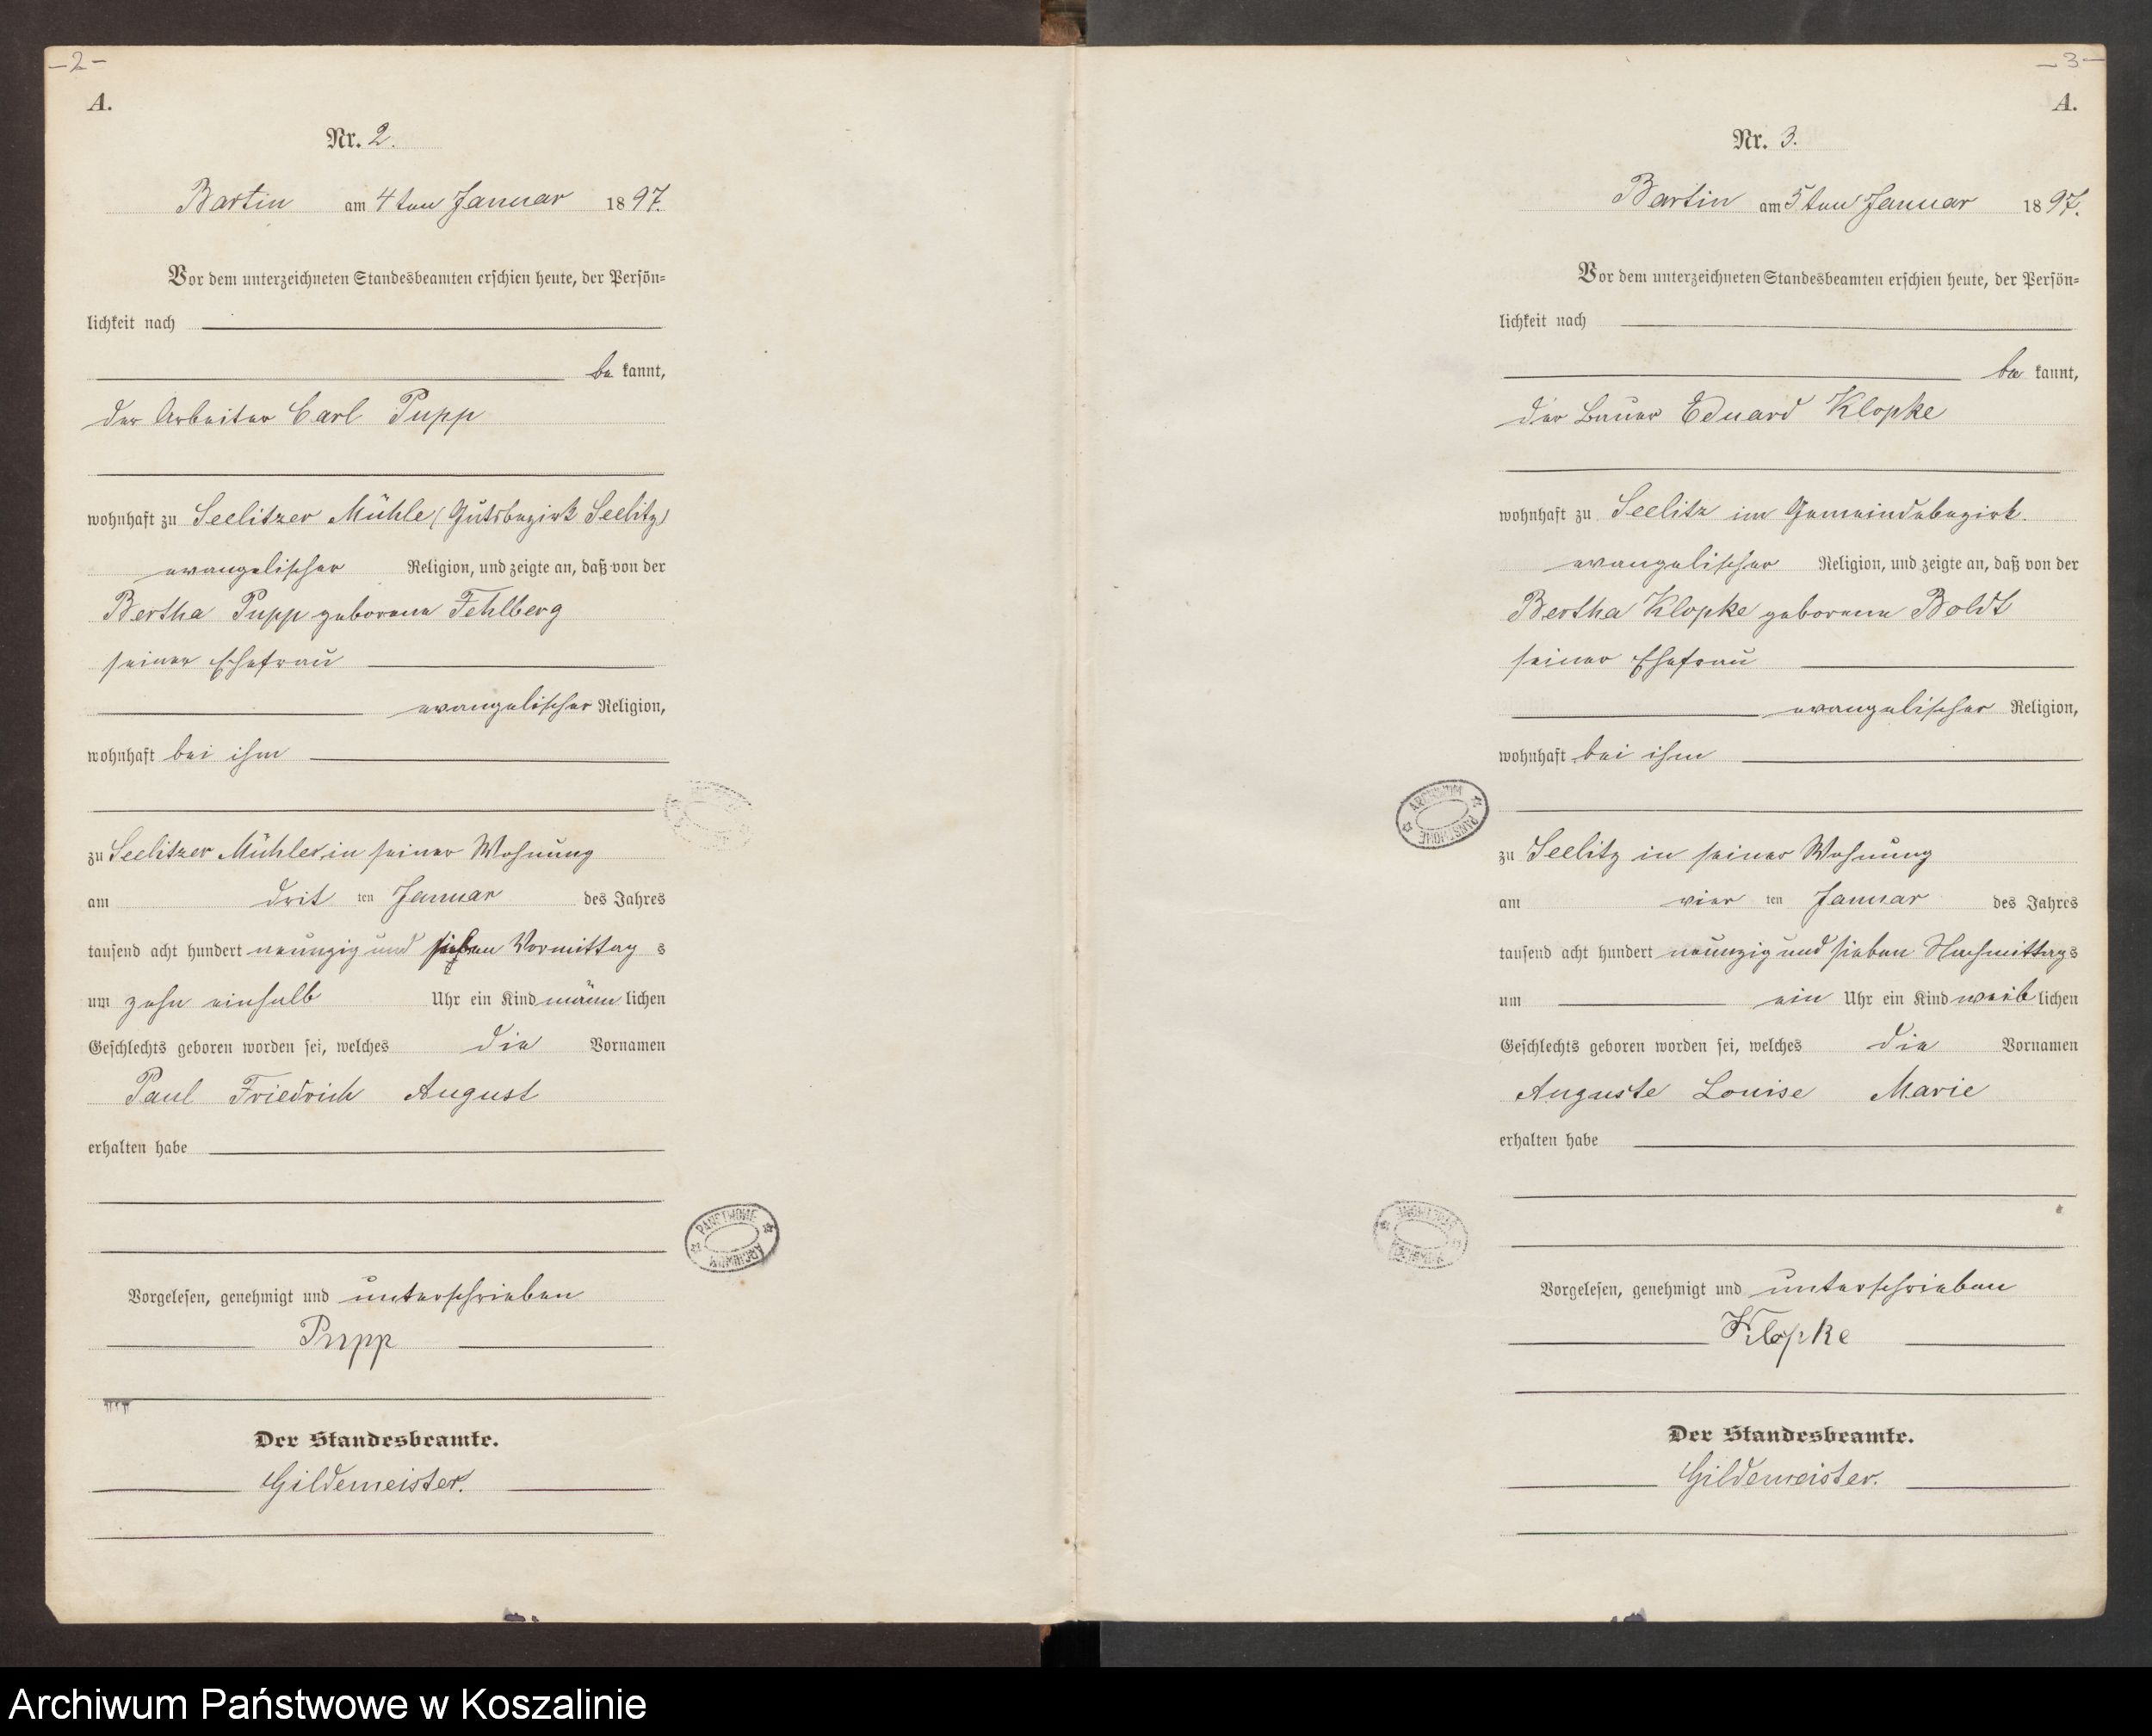 –2–
A.
Nr. 2.
Bartin am 4ten Januar 1897.
Vor dem unterzeichneten Standesbeamten erschien heute, der Persön-
lichkeit nach
be kannt,
der Arbeiter Carl Pupp
wohnhaft zu Seelitzer Mühle (Gutsbezirk Seelitz)
evangelischer Religion, und zeigte an, daß von der
Bertha Pupp geborene Fehlberg
seiner Ehefrau
evangelischer Religion,
wohnhaft bei ihm
zu Seelitzer Mühle in seiner Wohnung
am drit ten Januar des Jahres
tausend acht hundert neunzig und sieben Vormittag s
um zehn einhalb Uhr ein Kind männ lichen
Geschlechts geboren worden sei, welches die Vornamen
Paul Friedrich August
erhalten habe
Vorgelesen, genehmigt und unterschrieben
Pupp
Der Standesbeamte.
Gildemeister.
PAŃSTWOWE ARCHIWUM
–3–
A.
Nr. 3.
Bartin am 5ten Januar 1897.
Vor dem unterzeichneten Standesbeamten erschien heute, der Persön-
lichkeit nach
be kannt,
der Bauer Eduard Klopke
wohnhaft zu Seelitz im Gemeindebezirk.
evangelischer Religion, und zeigte an, daß von der
Bertha Klopke geborene Boldt
seiner Ehefrau
evangelischer Religion,
wohnhaft bei ihm
ARCHIWUM PAŃSTWOWE
zu Seelitz in seiner Wohnung
am vier ten Januar des Jahres
tausend acht hundert neunzig und sieben Nachmittags
um ein Uhr ein Kind weib lichen
Geschlechts geboren worden sei, welches die Vornamen
Auguste Louise Marie
erhalten habe
Vorgelesen, genehmigt und unterschrieben
Klopke
Der Standesbeamte.
Gildemeister.
Archiwum Państwowe w Koszalinie